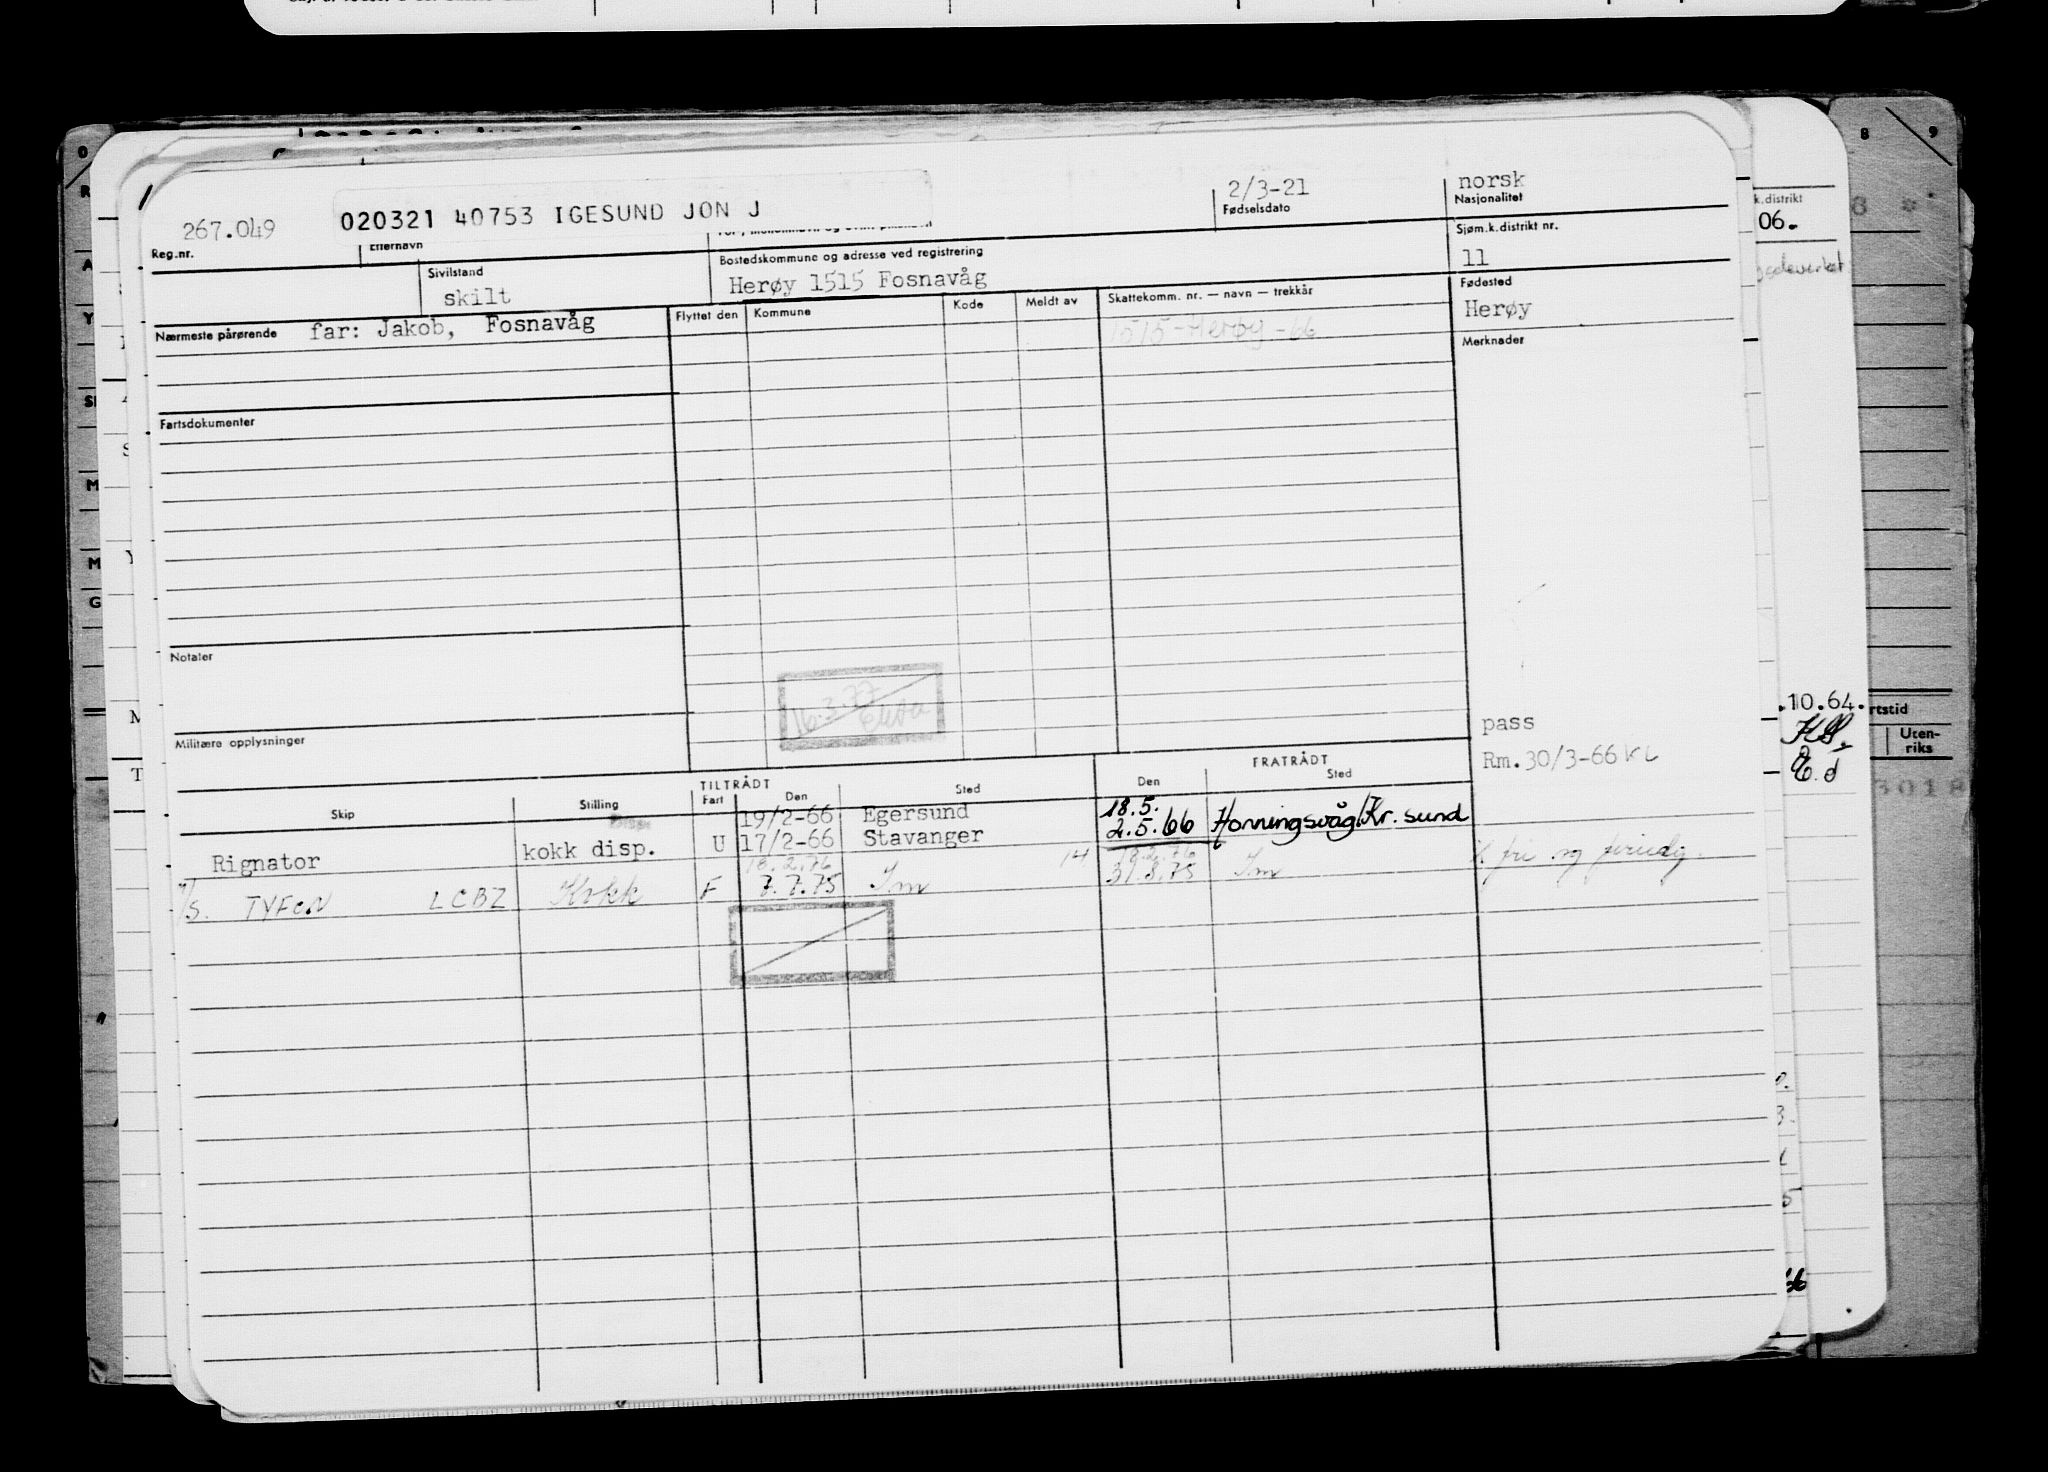 267.049
020321 40753 IGESUND JON J
2/3-21
norsk
Reg.nr.
Etternavn
Fødselsdato
Nasjonalitet
Sivilstand
skilt
Bostedskommune og adresse ved registrering
Herøy 1515 Fosnavåg
Sjøm.k.distrikt nr.
11
Nærmeste pårørende far: Jakob, Fosnavåg
Flyttet den
Kommune
Kode
Meldt av
Skattekomm. nr. — navn — trekkår
1515-Herøy-66
Fødested
Herøy
Merknader
Fartsdokumenter
Notater
16.3.77
Militære opplysninger
pass
Rm.30/3-66 KL
TILTRÅDT
FRATRÅDT
Skip
Stilling
Fart
Den
Sted
Den
Sted
19/2-66 Egersund 18.5.
Rignator kokk disp. U 17/2-66 Stavanger 2.5.66 Honningsvåg/Kr.sund
18.2.76 14 18.2.76
M/S. TYFON LCBZ Kokk F 7.7.75 Sm 31.8.75 Sm
k.distrikt
06.
8
9
.10.64.
rtstid
Uten-
riks
3018
66